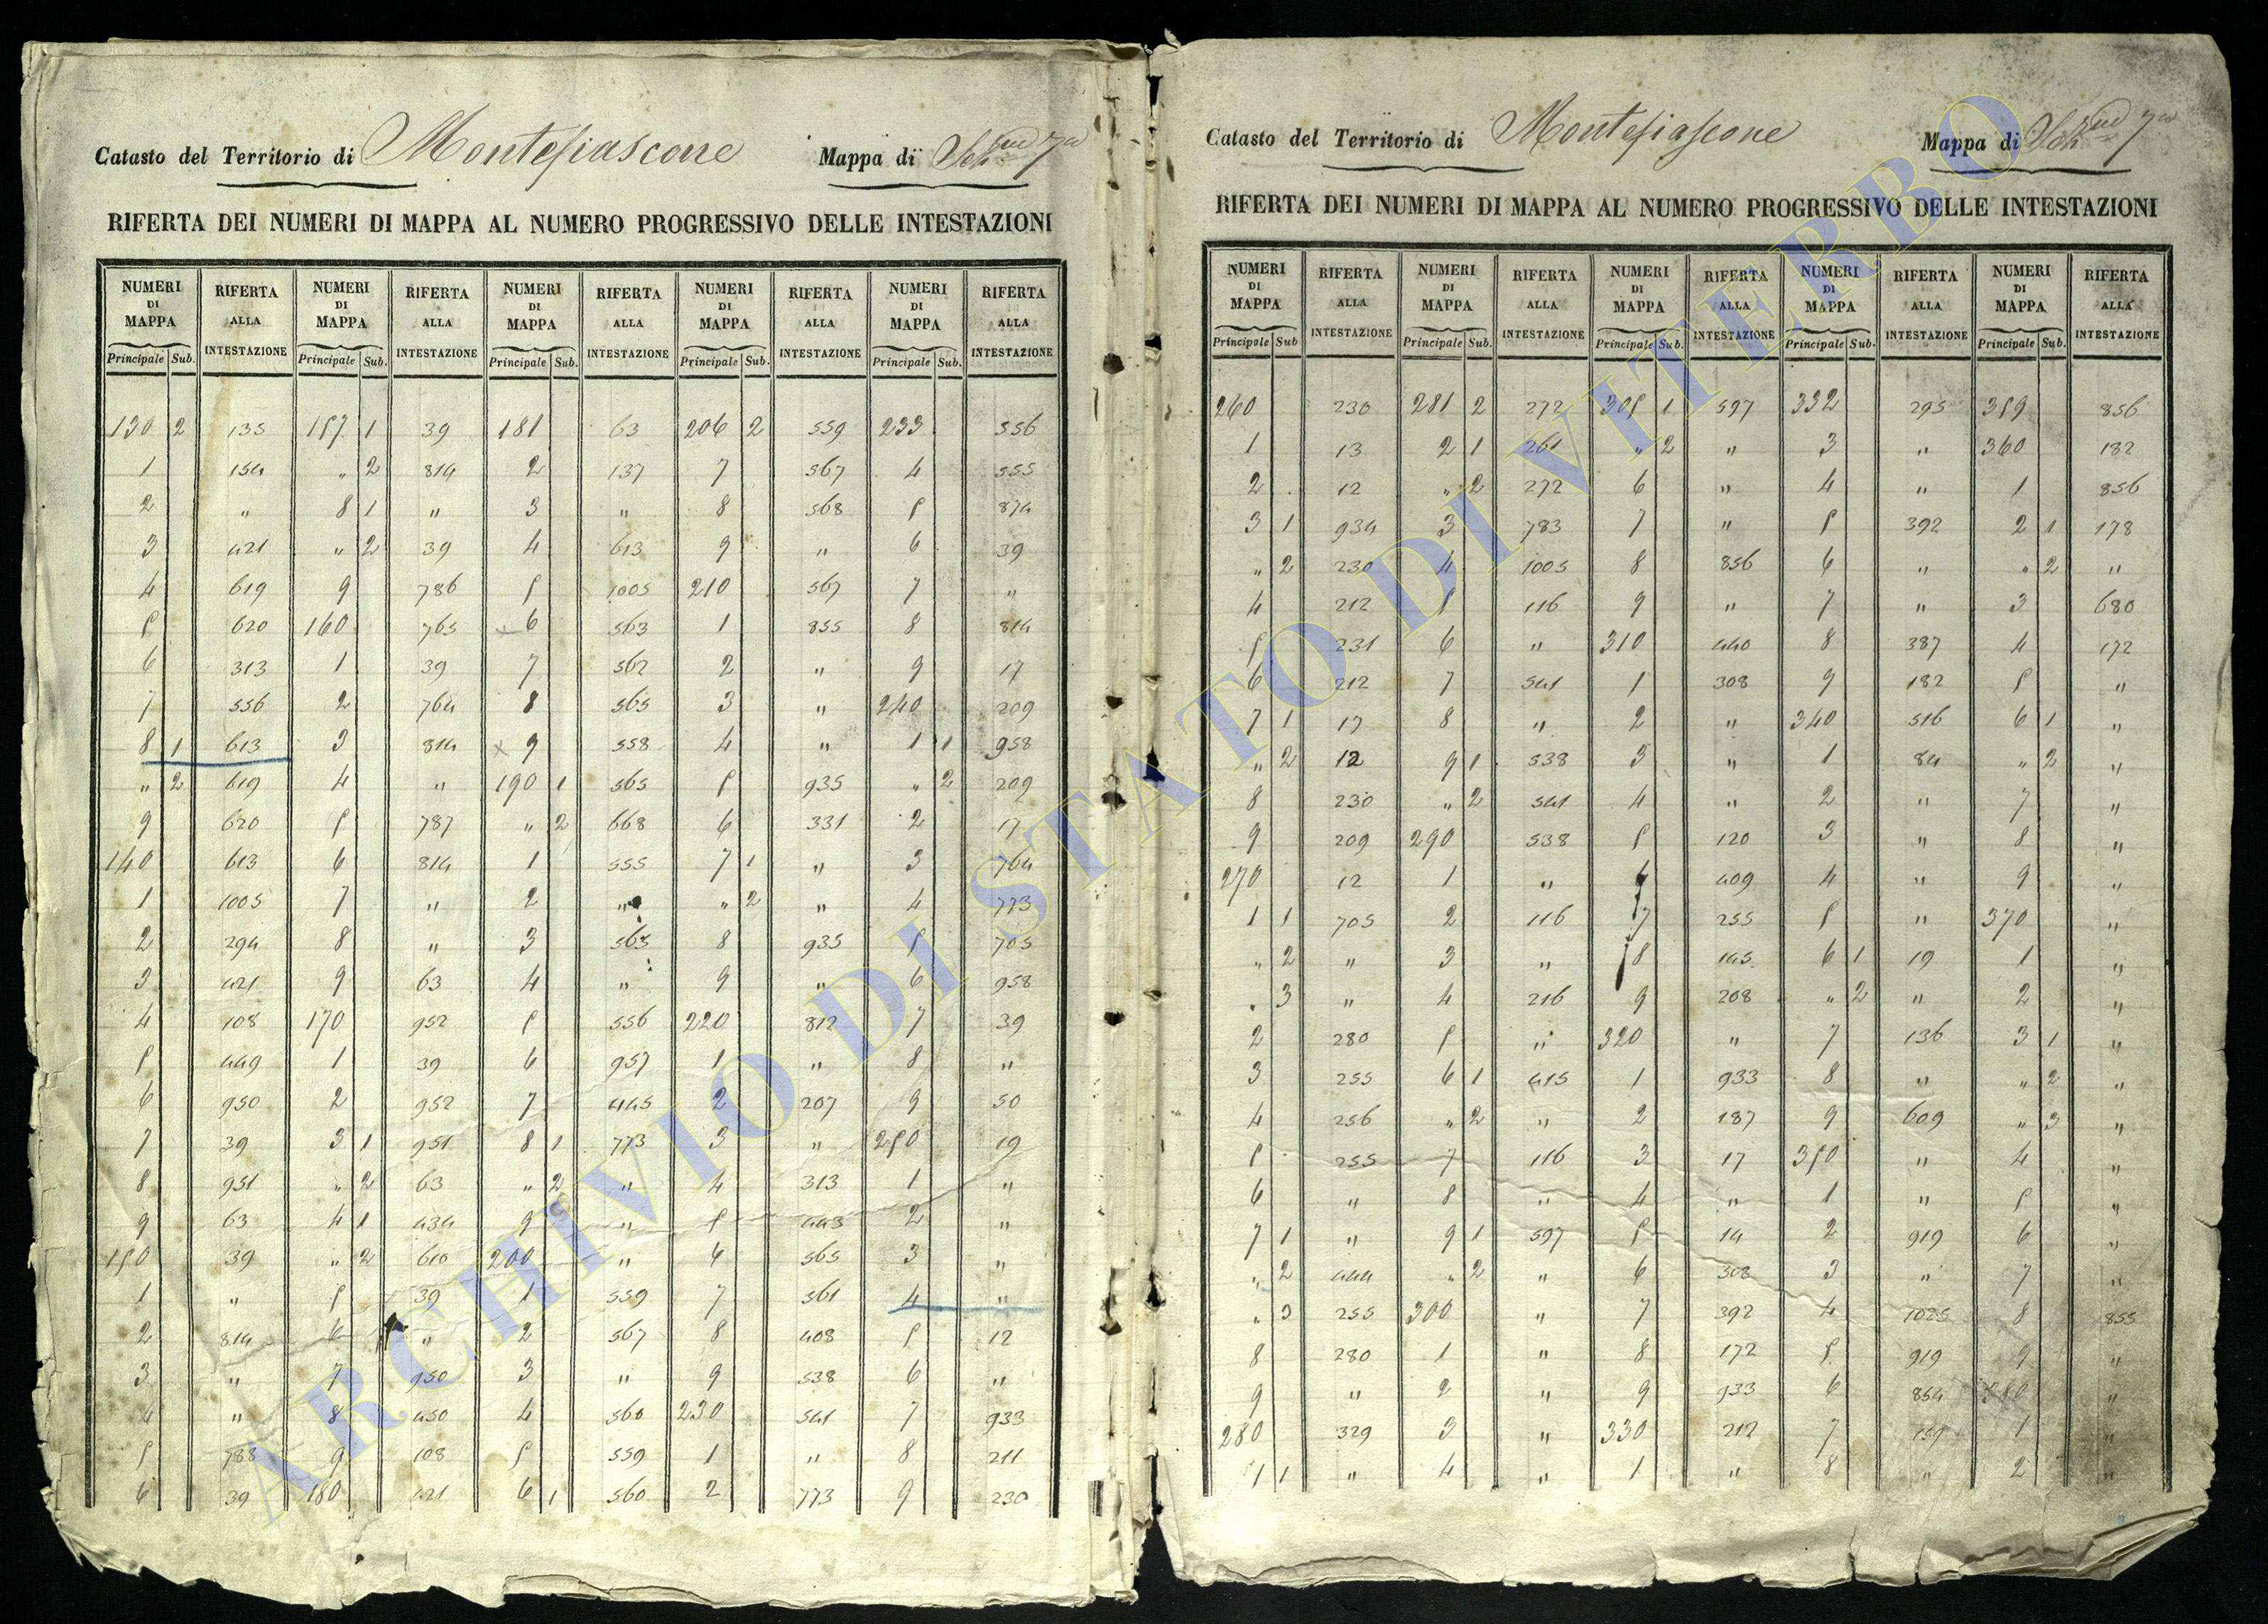 Catasto del Territorio di Montefiascone Mappa di Sez.ne 7a
RIFERTA DEI NUMERI DI MAPPA AL NUMERO PROGRESSIVO DELLE INTESTAZIONI
NUMERI DI MAPPA RIFERTA ALLA INTESTAZIONE NUMERI DI MAPPA RIFERTA ALLA INTESTAZIONE NUMERI DI MAPPA RIFERTA ALLA INTESTAZIONE NUMERI DI MAPPA RIFERTA ALLA INTESTAZIONE NUMERI DI MAPPA RIFERTA ALLA INTESTAZIONE
Principale Sub. Principale Sub. Principale Sub. Principale Sub. Principale Sub.
130 2 135 157 1 39 181 63 206 2 559 233 556
1 154 " 2 814 2 137 7 567 4 555
2 " 8 1 " 3 " 8 568 5 874
3 421 " 2 39 4 613 9 " 6 39
4 619 9 786 5 1005 210 567 7 "
5 620 160 765 x 6 563 1 855 8 814
6 313 1 39 7 562 2 " 9 17
7 556 2 764 8 565 3 " 240 209
8 1 613 3 814 x 9 558 4 " 1 1 958
" 2 619 4 " 190 1 565 5 935 " 2 209
9 620 5 787 " 2 668 6 331 2 17
140 613 6 814 1 555 7 1 " 3 764
1 1005 7 " 2 " " 2 " 4 773
2 294 8 " 3 565 8 935 5 705
3 421 9 63 4 " 9 " 6 958
4 108 170 952 5 556 220 812 7 39
5 449 1 39 6 957 1 " 8 "
6 950 2 952 7 445 2 207 9 50
7 39 3 1 951 8 1 773 3 " 250 19
8 951 " 2 63 " 2 " 4 313 1 "
9 63 4 1 434 9 " 5 443 2 "
150 39 " 2 610 200 " 6 565 3 "
1 " 5 39 1 559 7 561 4 "
2 814 6 " 2 567 8 408 5 12
3 " 7 950 3 " 9 538 6 "
4 " 8 450 4 560 230 541 7 933
5 788 9 108 5 559 1 " 8 211
6 39 180 421 6 1 560 2 773 9 230
Catasto del Territorio di Montefiascone Mappa di Sez.ne 7a
RIFERTA DEI NUMERI DI MAPPA AL NUMERO PROGRESSIVO DELLE INTESTAZIONI
NUMERI DI MAPPA RIFERTA ALLA INTESTAZIONE NUMERI DI MAPPA RIFERTA ALLA INTESTAZIONE NUMERI DI MAPPA RIFERTA ALLA INTESTAZIONE NUMERI DI MAPPA RIFERTA ALLA INTESTAZIONE NUMERI DI MAPPA RIFERTA ALLA INTESTAZIONE
Principale Sub Principale Sub. Principale Sub. Principale Sub. Principale Sub.
260 230 281 2 272 305 1 597 332 295 359 856
1 13 2 1 261 " 2 " 3 " 360 182
2 12 " 2 272 6 " 4 " 1 856
3 1 934 3 783 7 " 5 392 2 1 178
" 2 230 4 1005 8 856 6 " " 2 "
4 212 5 116 9 " 7 " 3 680
5 231 6 " 310 440 8 387 4 172
6 212 7 541 1 308 9 182 5 "
7 1 17 8 " 2 " 340 516 6 1 "
" 2 12 9 1 538 3 " 1 84 " 2 "
8 230 " 2 541 4 " 2 " 7 "
9 209 290 538 5 120 3 " 8 "
270 12 1 " 6 409 4 " 9 "
1 1 705 2 116 7 255 5 " 370 "
" 2 " 3 " 8 145 6 1 19 1 "
" 3 " 4 216 9 208 " 2 " 2 "
2 280 5 " 320 " 7 136 3 1 "
3 255 6 1 415 1 933 8 " " 2 "
4 256 " 2 " 2 187 9 609 " 3 "
5 255 7 116 3 17 350 " 4 "
6 " 8 " 4 " 1 " 5 "
7 1 " 9 1 597 5 14 2 919 6 "
" 2 444 " 2 " 6 308 3 " 7 "
" 3 255 300 " 7 392 4 1025 8 855
8 280 1 " 8 172 5 919 9 "
9 " 2 " 9 933 6 854 380 "
280 329 3 " 330 212 7 159 1 "
1 1 " 4 " 1 " 8 " 2 "
ARCHIVIO DI STATO DI VITERBO